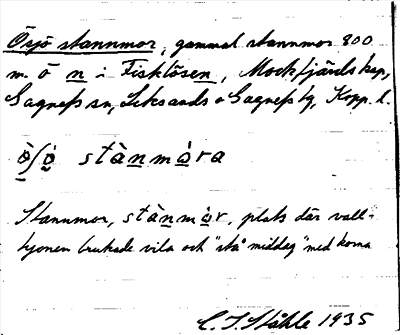 Örjö stannmor, gammal stannmor 800
m. ö n i Fisklösen, Mockfjärds kap,
Gagnefs sn, Leksands o Gagnefs tg, Kopp. l.
stànmòra
Stannmor, stànmòr, plats där vall-
hjonen brukade vila och "stå middag" med korna
C. I. Ståhle 1935